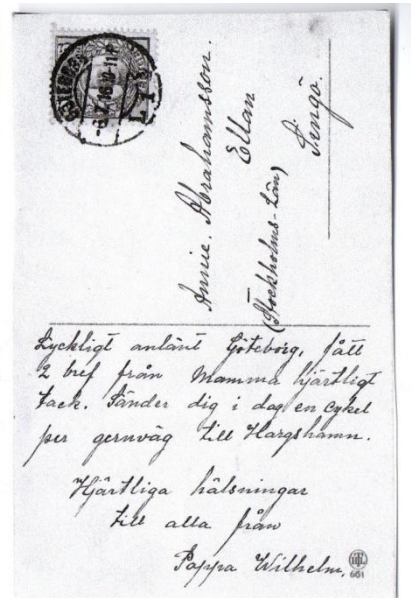 GÖTEBORG
-6.7.16 10-11 F
Annie. Abrahamsson.
Ellan
(Stockholms-Län)
Singö.
Lyckligt anlänt Göteborg, fått
2 bref från Mamma hjärtligt
tack. Sänder dig i dag en cykel
per gernväg till Hargshamn.
Hjärtliga hälsningar
till alla från
Pappa Wilhelm.
661